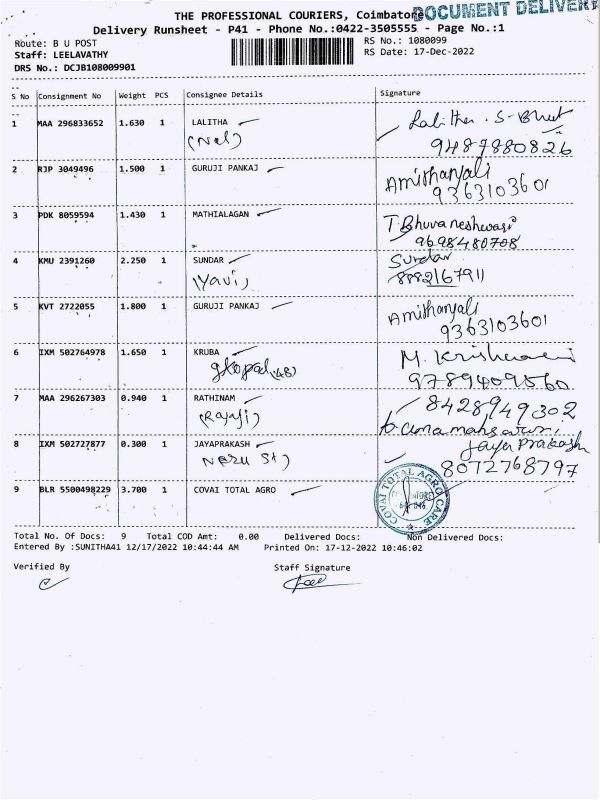 THE PROFESSIONAL COURIERS, Coimbatore
DOCUMENT DELIVERY
Delivery Runsheet - P41 - Phone No.:0422-3505555 - Page No.:1
Route: B U POST
RS No.: 1080099
Staff: LEELAVATHY
RS Date: 17-Dec-2022
DRS No.: DCJB108009901
S No Consignment No Weight PCS Consignee Details Signature
1 MAA 296833652 1.630 1 LALITHA Lalitha. S- Bhat
(Nel) 9487880826
2 RJP 3049496 1.500 1 GURUJI PANKAJ Amithanjali
9363103601
3 PDK 8059594 1.430 1 MATHIALAGAN T. Bhuvaneshwari
9698480708
4 KMU 2391260 2.250 1 SUNDAR Sundar
(Yavi) 8882167911
5 KVT 2722055 1.800 1 GURUJI PANKAJ Amithanjali
9363103601
6 IXM 502764978 1.650 1 KRUBA M. Krishnaveni
gkopal (48) 9789409560
7 MAA 296267303 0.940 1 RATHINAM 8428949302
(Rajaji) to umamaheswari
8 IXM 502727877 0.300 1 JAYAPRAKASH Jaya Prakash
Neru St) 8072768797
9 BLR 5500498229 3.700 1 COVAI TOTAL AGRO COVAI TOTAL AGRO CARE
Total No. Of Docs: 9 Total COD Amt: 0.00 Delivered Docs: Non Delivered Docs:
Entered By :SUNITHA41 12/17/2022 10:44:44 AM Printed On: 17-12-2022 10:46:02
Verified By Staff Signature